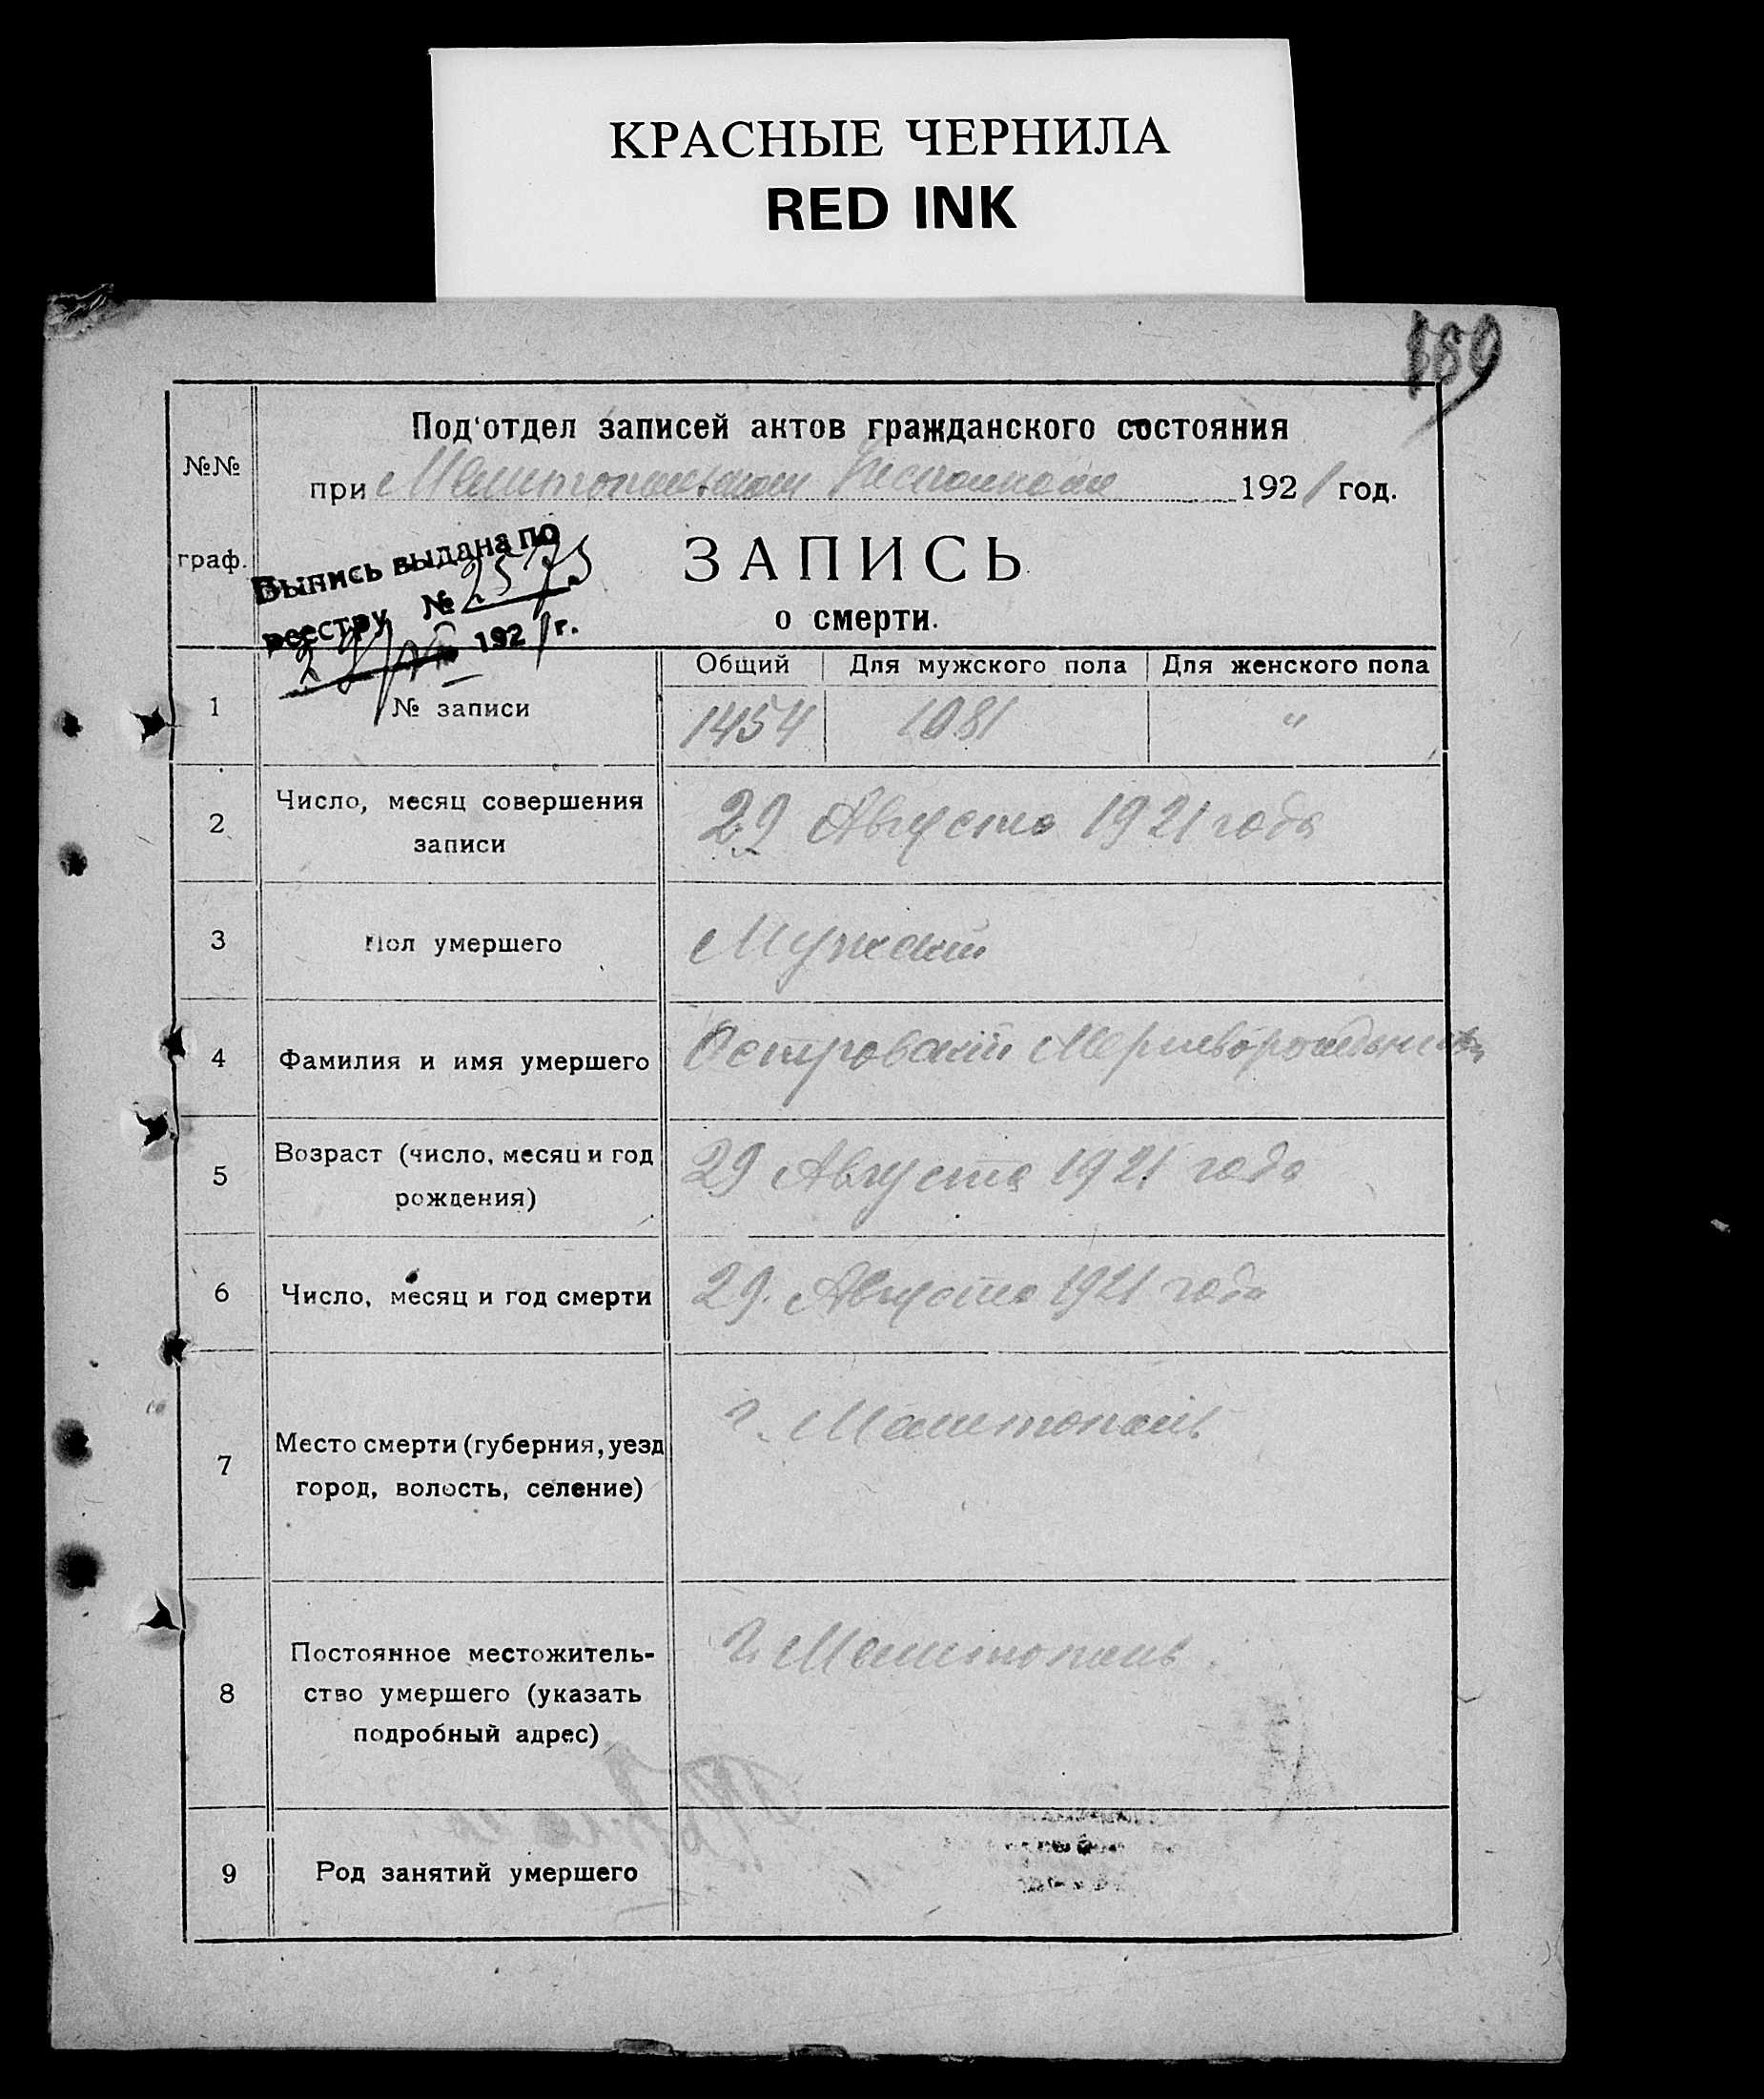 КРАСНЫЕ ЧЕРНИЛА
RED INK
189
Под'отдел записей актов гражданского состояния
№№
при Мелитопольском Исполкоме 1921 год.
граф.
Выпись выдана по
реестру № 2573
192 г.
ЗАПИСЬ
о смерти.
Общий Для мужского пола Для женского пола
1 № записи 1454 1081 "
2 Число, месяц совершения
записи
29 Августа 1921 года
3 Пол умершего Мужской
4 Фамилия и имя умершего Островский Мертворожденный
5 Возраст (число, месяц и год
рождения)
29 Августа 1921 года
6 Число, месяц и год смерти 29. Августа 1921 года
7 Место смерти (губерния, уезд
город, волость, селение)
г. Мелитополь
8 Постоянное местожитель-
ство умершего (указать
подробный адрес)
г. Мелитополь.
9 Род занятий умершего